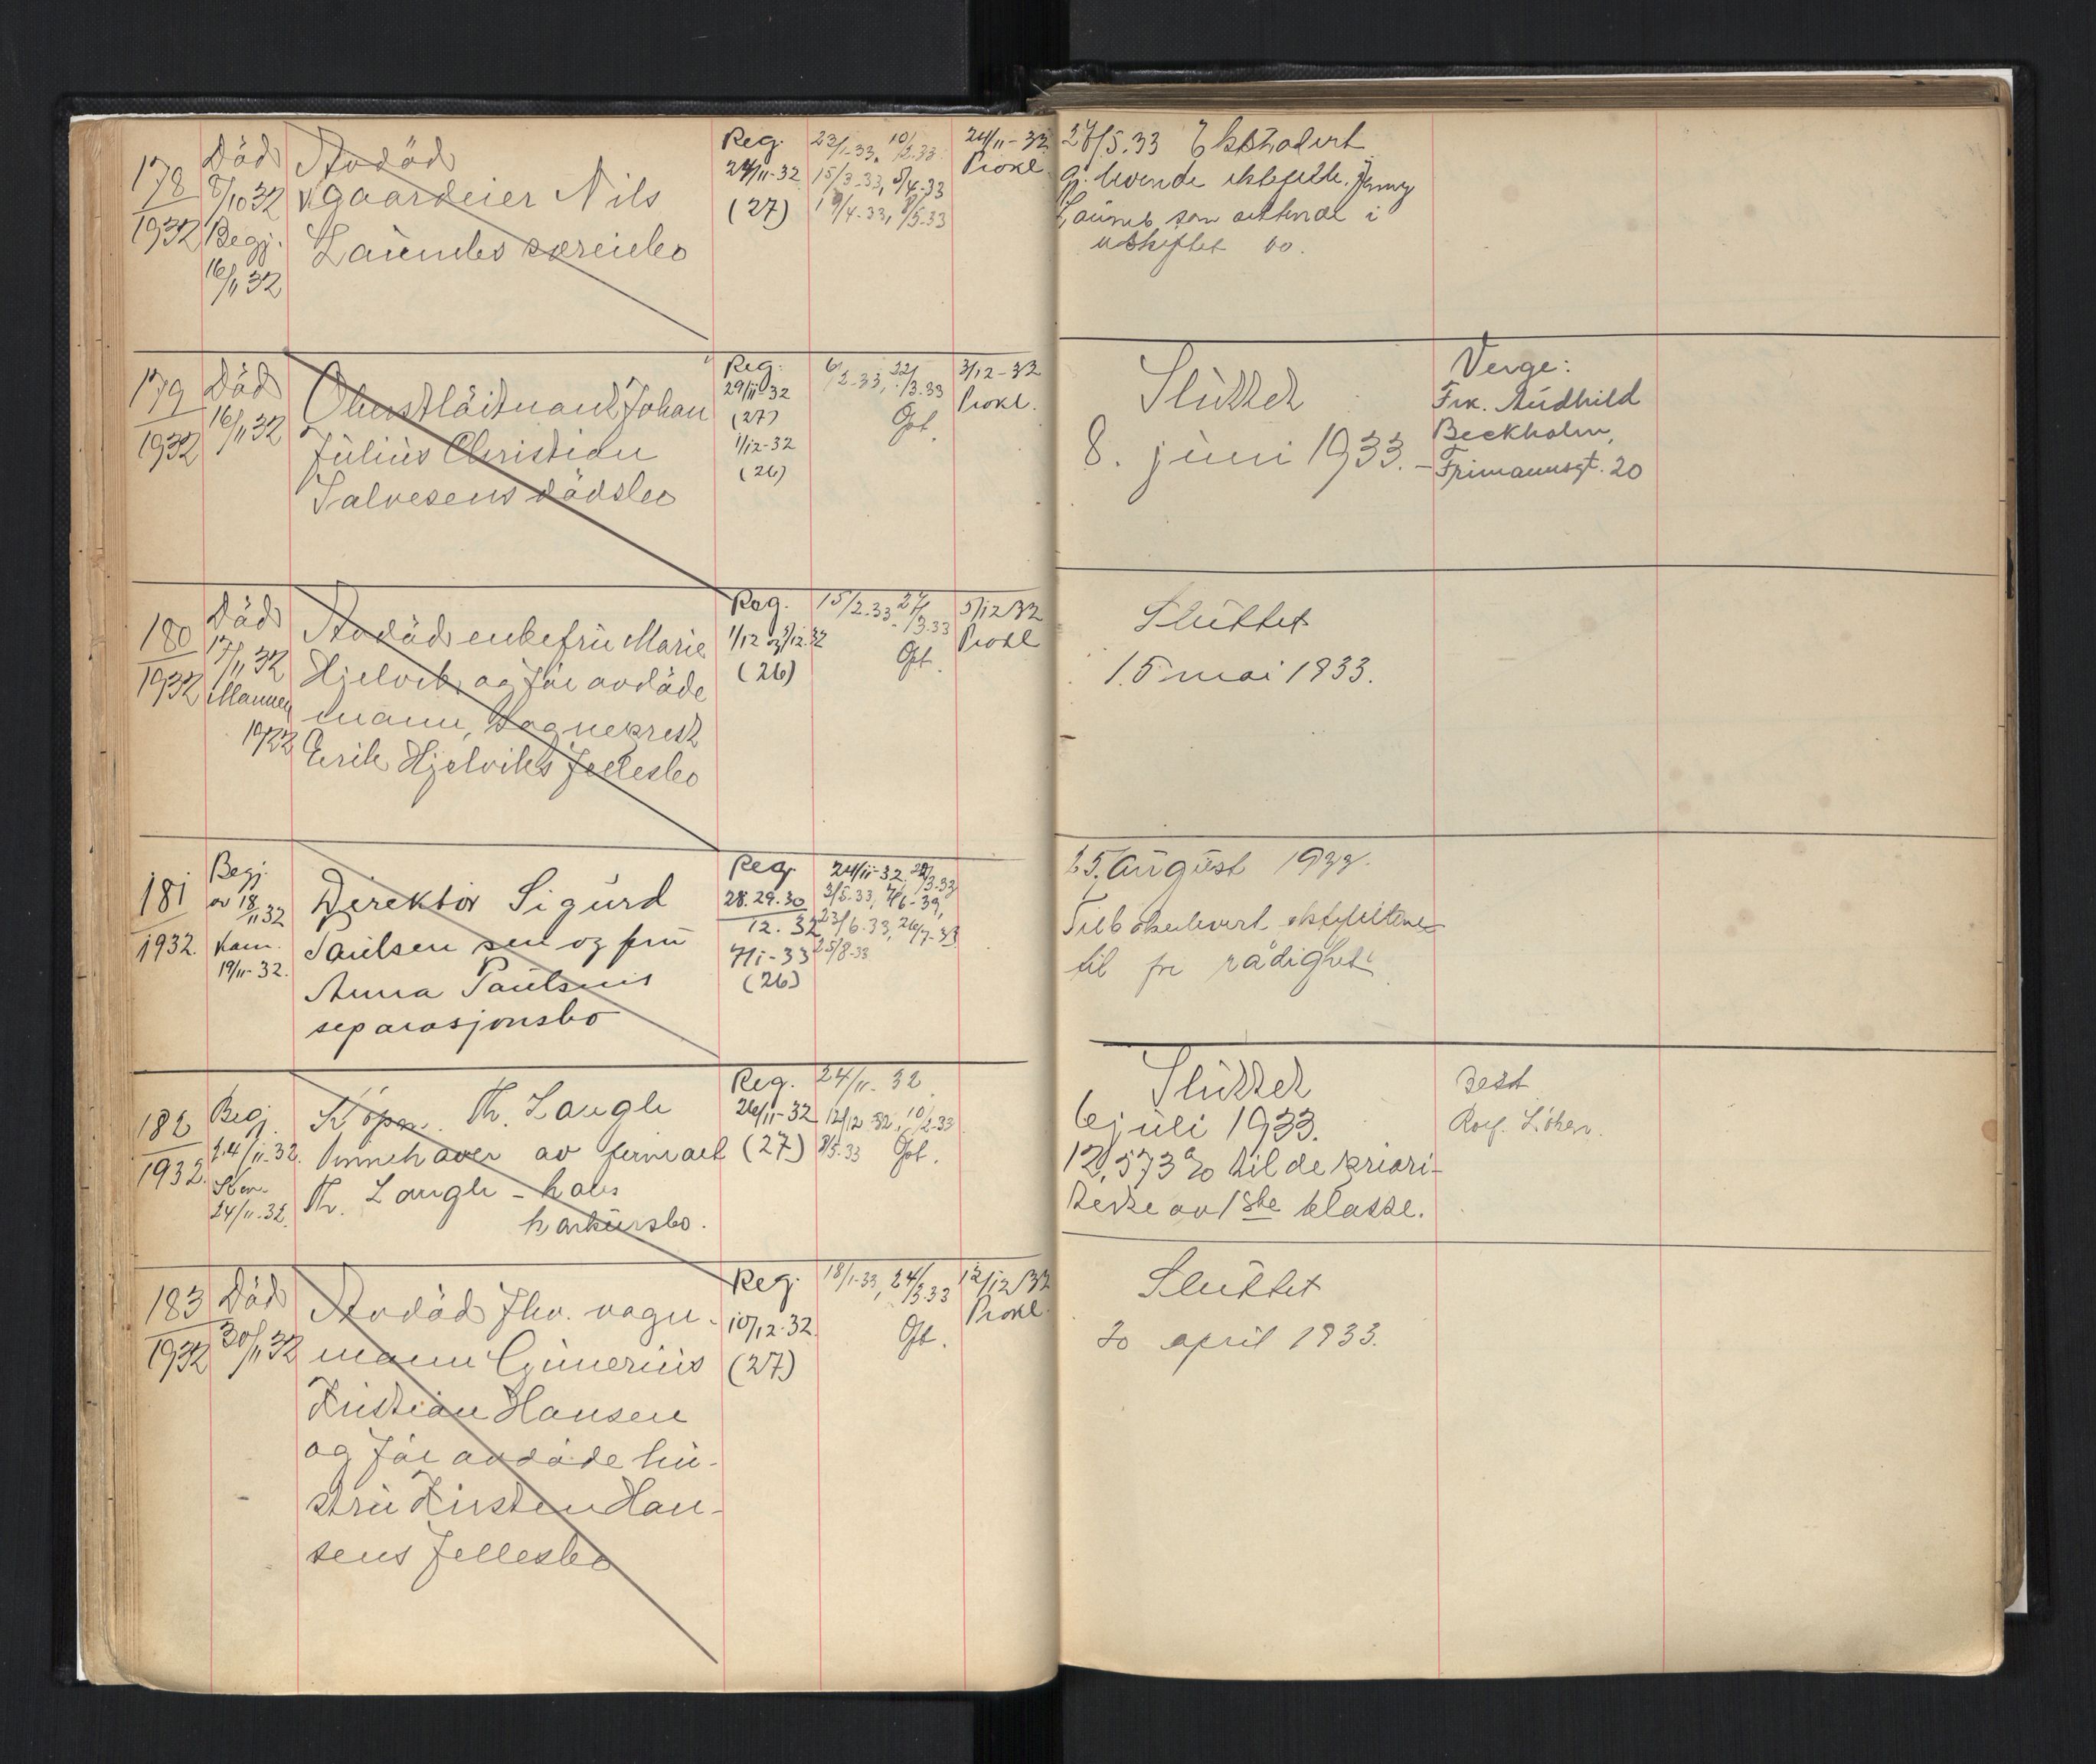 178
1932
Død
8/10 32
Begj.
16/11 32
Avdöd
gaardeier Nils
Launes særeiebo
Reg.
24/11-32
(27)
23/1-33, 10/2.33.
15/3-33, 5/4-33
19/4-33, 8/5.33
24/11-32
Prokl.
27/5.33 Ekstradert
gj. levende ektefelle, Jenny
Launes som sittende i
uskiftet bo.
179
1932
Död
16/11 32
Oberstlöitnant Johan
Julius Christian
Salvesens dödsbo
Reg.
29/11 32
(27)
1/12-32
(26)
6/2-33, 22/3.33
Opt.
3/12-32
Prokl.
Sluttet
8. juni 1933.-
Verge:
Frk. Audhild
Beckholm,
Frimannsgt. 20
180
1932
Död
17/11 32
Mannen
1922
Avdöd enkefru Marie
Hjelvik og för avdöde
mann, Sogneprest
Eerik Hjelviks fellesbo
Reg.
1/12 og 3/12.32
(26)
15/2.33, 27/3.33
Opt.
5/12 32
Prokl
Sluttet
15 mai 1933.
181
1932.
Begj.
av 18/11 32
Kom.
19/11-32.
Direktör Sigurd
Paulsen sen og fru
Anna Paulsens
separasjonsbo
Reg.
28.29.30
12.32
7/1-33
(26)
24/11-32, 29/3.33
3/5-33, 7/6-33,
23/6.33, 26/7-33
25/8-33
25. august 1933.
Tilbakelevert ektefellene
til fri rådighet.
182
1932.
Begj.
24/11-32.
Kom.
24/11.32.
Köpm. Th. Laugli
Innehaver av firmaet
Th. Laugli - kols
konkursbo.
Reg.
26/11-32
(27)
24/11. 32
12/12 32, 10/2.33
8/5.33 Opt.
Sluttet
6 juli 1933.
12,573 % til de priori-
terte av 1ste klasse.
Rolf
183
1932
Död
30/11 32
Avdöd fhv. vogn-
mann Gunerius
Kristian Hansen
og för avdöde hu-
stru Kirsten Han-
sens fellesbo
Reg.
10/12.32.
(27)
18/1-33, 24/3.33
Opt.
12/12 32
Prokl.
Sluttet
20 april 1933.